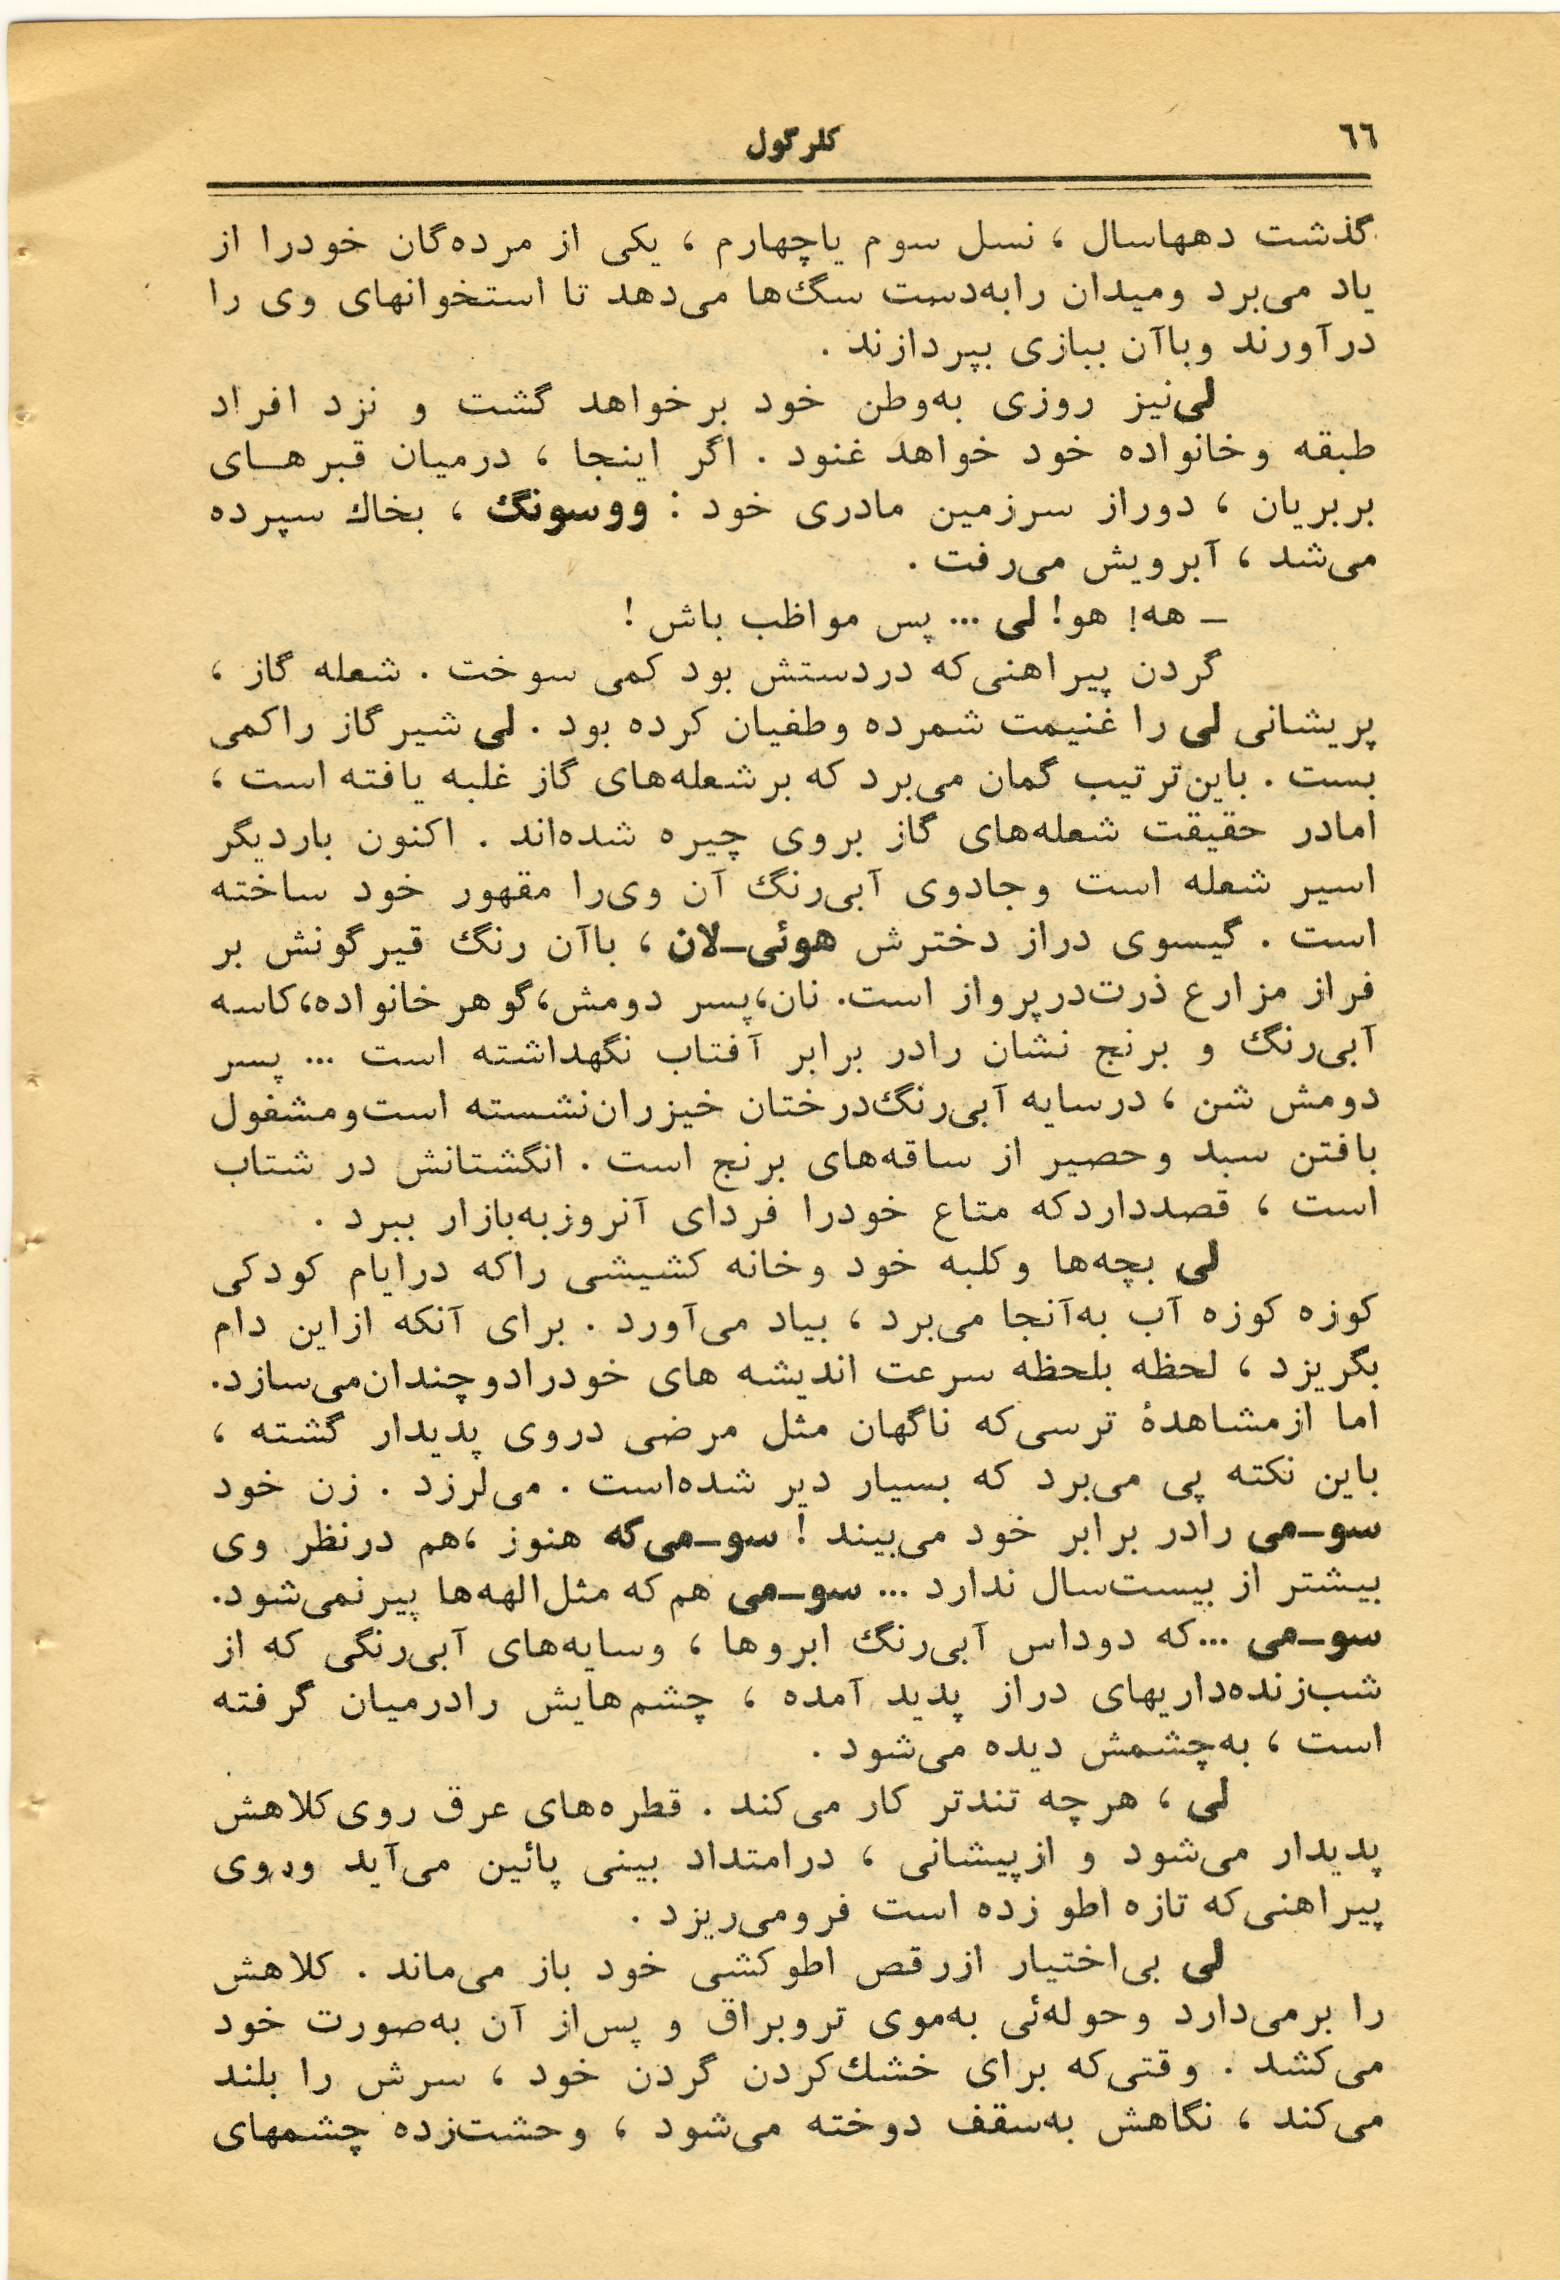 ٦٦
کلرگول
گذشت دهها‌سال ، نسل سوم یاچهارم ، یکی از مرده‌گان خودرا از
یاد می‌برد ومیدان رابه‌دست سگ‌ها می‌دهد تا استخوانهای وی را
درآورند وباآن ببازی بپردازند .
لی‌نیز روزی به‌وطن خود برخواهد گشت و نزد افراد
طبقه وخانواده خود خواهد غنود . اگر اینجا ، درمیان قبرهـای
بربریان ، دوراز سرزمین مادری خود : ووسونگ ، بخاك سپرده
می‌شد ، آبرویش می‌رفت .
ـ هه! هو! لی ... پس مواظب باش !
گردن پیراهنی‌که دردستش بود کمی سوخت . شعله گاز ،
پریشانی لی را غنیمت شمرده وطفیان کرده بود . لی شیرگاز راکمی
بست . باین‌ترتیب گمان می‌برد که برشعله‌های گاز غلبه یافته است ،
امادر حقیقت شعله‌های گاز بروی چیره شده‌اند . اکنون باردیگر
اسیر شعله است وجادوی آبی‌رنگ آن وی‌را مقهور خود ساخته
است . گیسوی دراز دخترش هوئی‌ـلان ، باآن رنگ قیرگونش بر
فراز مزارع ذرت‌درپرواز است. نان،پسر دومش،گوهرخانواده،کاسه
آبی‌رنگ و برنج نشان رادر برابر آفتاب نگهداشته است ... پسر
دومش شن ، درسایه آبی‌رنگ‌درختان خیزران‌نشسته است‌ومشفول
بافتن سبد وحصیر از ساقه‌های برنج است . انگشتانش در شتاب
است ، قصدداردکه متاع خودرا فردای آنروزبه‌بازار ببرد .
لی بچه‌ها وکلبه خود وخانه کشیشی راکه درایام کودکی
کوزه کوزه آب به‌آنجا می‌برد ، بیاد می‌آورد . برای آنکه ازاین دام
بگریزد ، لحظه بلحظه سرعت اندیشه های خودرادوچندان‌می‌سازد.
اما ازمشاهدهٔ ترسی‌که ناگهان مثل مرضی دروی پدیدار گشته ،
باین نکته پی می‌برد که بسیار دیر شده‌است . می‌لرزد . زن خود
سوـمی رادر برابر خود می‌بیند ! سوـمی‌که هنوز ،هم درنظر وی
بیشتر از بیست‌سال ندارد ... سوـمی هم‌که مثل‌الهه‌ها پیرنمی‌شود.
سوـمی ...که دوداس آبی‌رنگ ابروها ، وسایه‌های آبی‌رنگی که از
شب‌زنده‌داریهای دراز پدید آمده ، چشم‌هایش رادرمیان گرفته
است ، به‌چشمش دیده می‌شود .
لی ، هرچه تندتر کار می‌کند . قطره‌های عرق روی‌کلاهش
پدیدار می‌شود و ازپیشانی ، درامتداد بینی پائین می‌آید وروی
پیراهنی‌که تازه اطو زده است فرومی‌ریزد .
لی بی‌اختیار ازرقص اطوکشی خود باز می‌ماند . کلاهش
را برمی‌دارد وحوله‌ئی به‌موی تروبراق و پس‌از آن به‌صورت خود
می‌کشد . وقتی‌که برای خشك‌کردن گردن خود ، سرش را بلند
می‌کند ، نگاهش به‌سقف دوخته می‌شود ، وحشت‌زده چشمهای